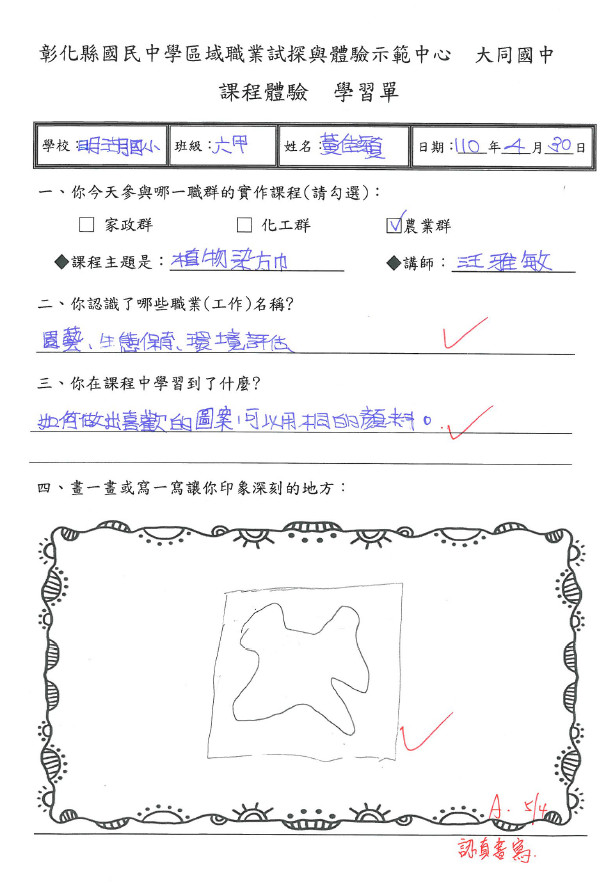 彰化縣國民中學區域職業試探與體驗示範中心　大同國中
課程體驗　學習單
學校：明湖國小 班級：六甲 姓名：黃佳穎 日期：110年4月30日
一、你今天參與哪一職群的實作課程(請勾選)：
□ 家政群 □ 化工群 ☑農業群
◆課程主題是：植物染方巾 ◆講師：汪雅敏
二、你認識了哪些職業(工作)名稱?
園藝、生態保育、環境評估
三、你在課程中學習到了什麼?
如何做出喜歡的圖案,可以用不同的顏料。
四、畫一畫或寫一寫讓你印象深刻的地方：
A. 5/4
認真書寫.